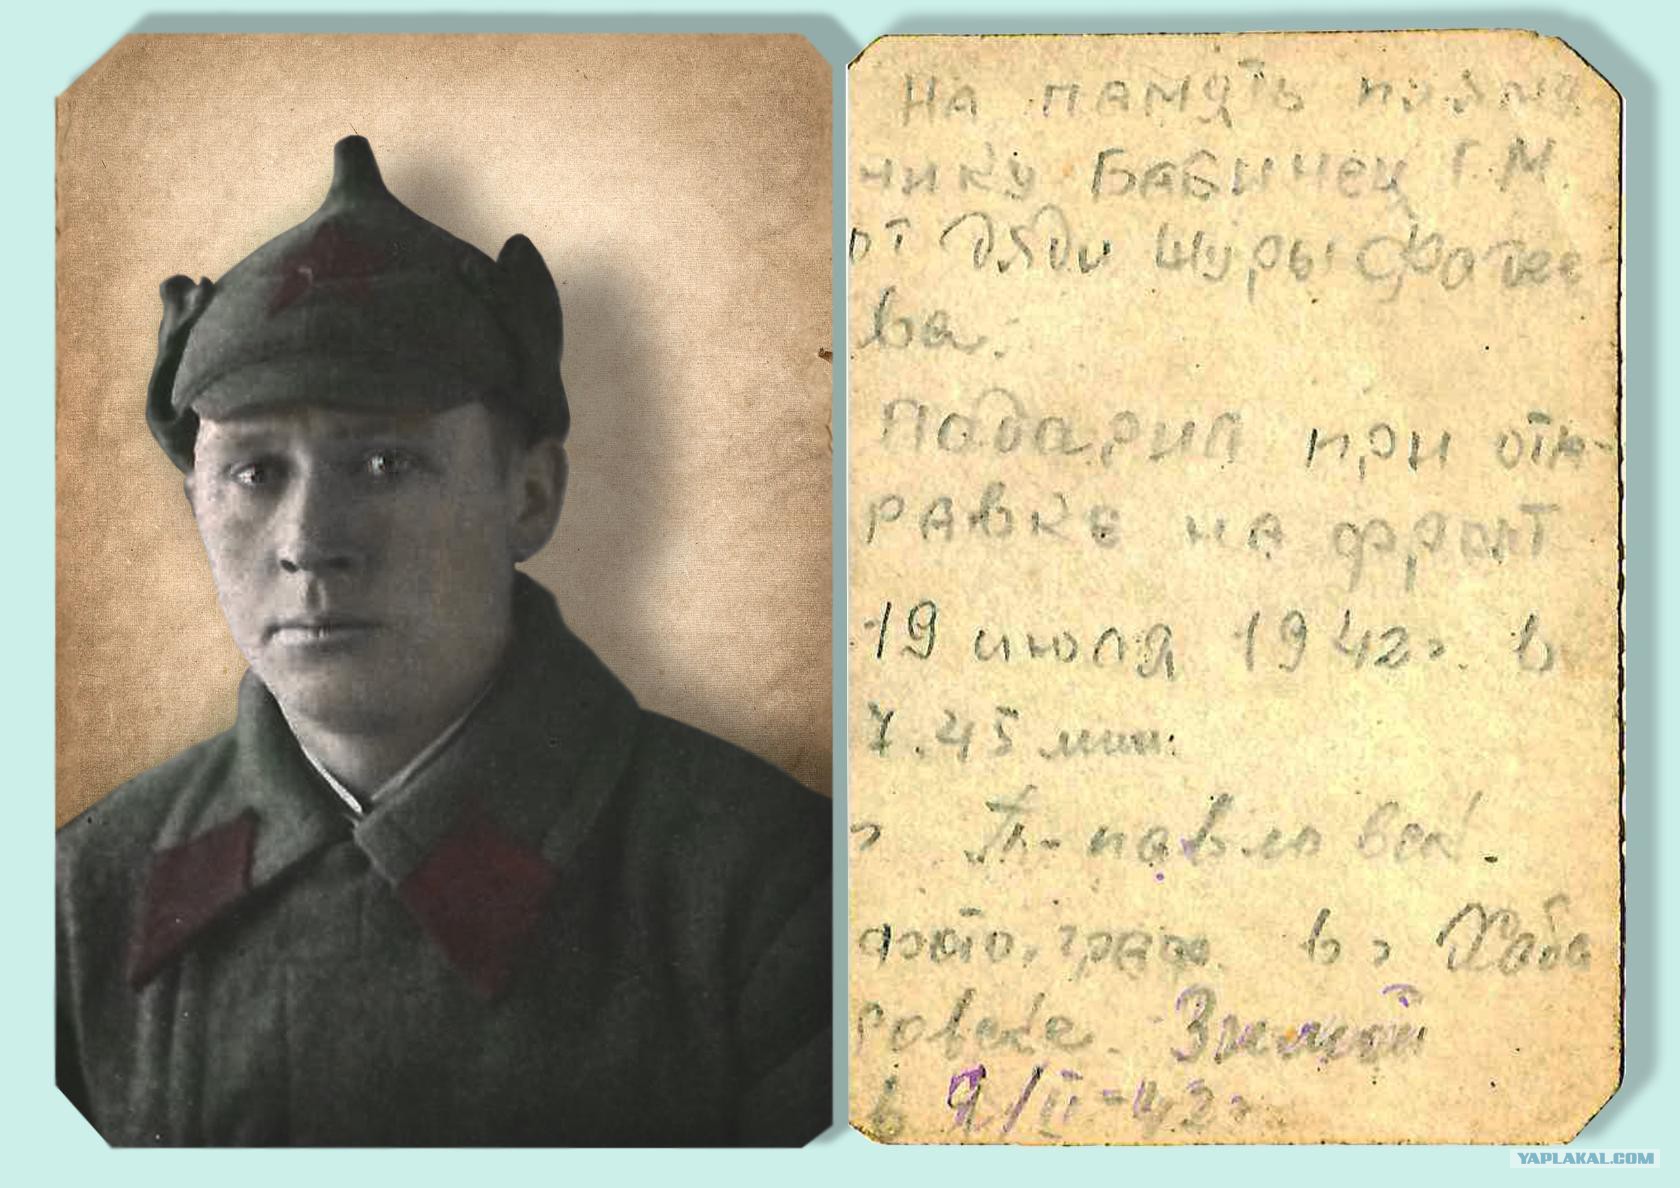 На память племя
нику Бабинец Г.М.
от дяди Шуры Фотее
ва.
Подарил при отп-
равке на фронт
19 июля 1942г. в
7.45 мин.
г. П-павловск.
фотограф. в г Хаба
ровске. Зимой
в II-42г
YAPLAKAL.COM